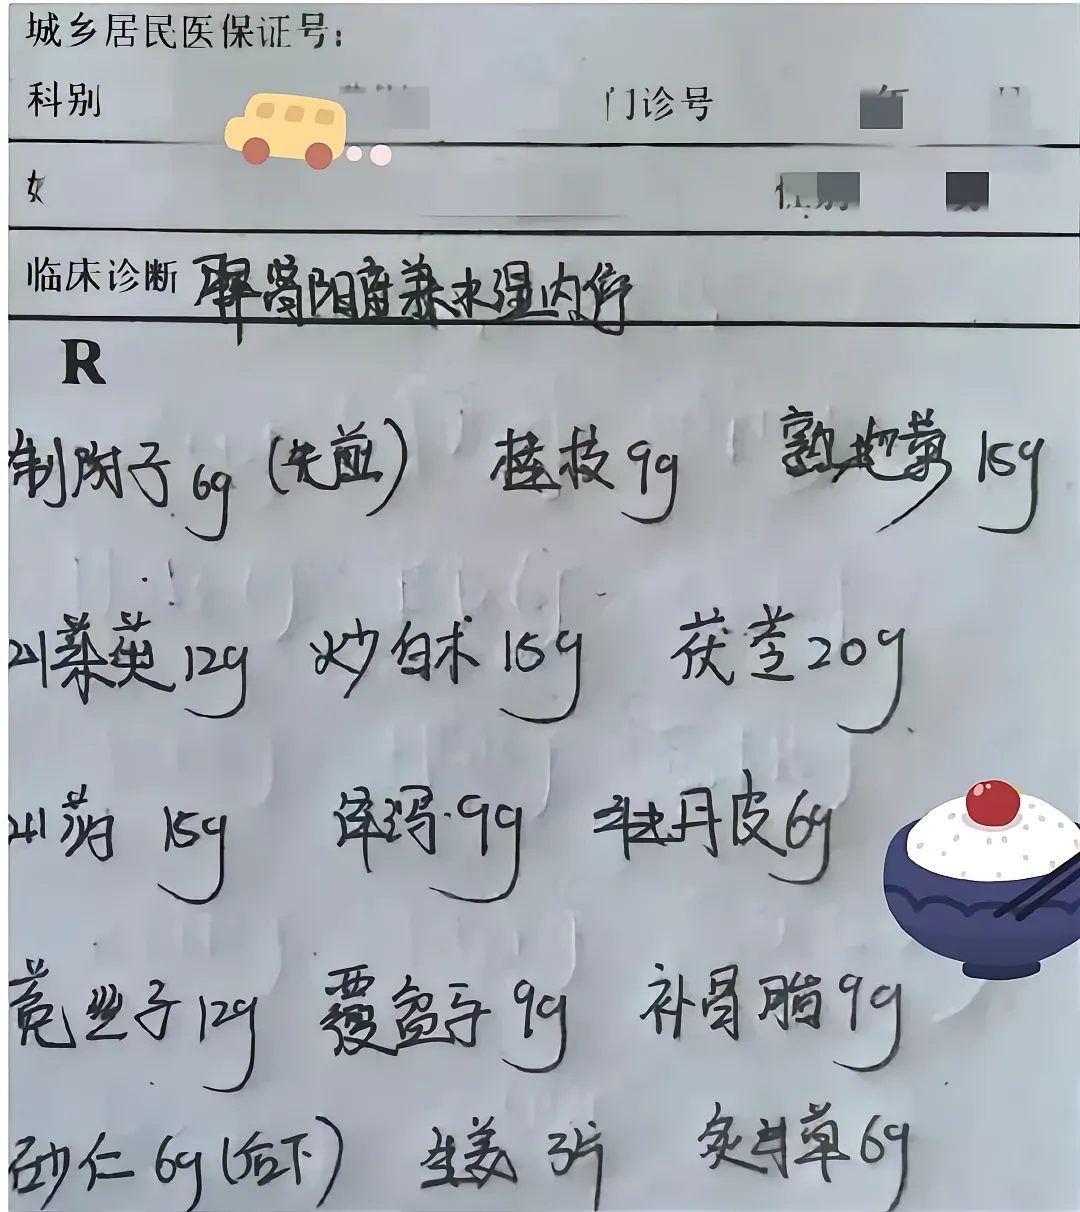 城乡居民医保证号：
科别 门诊号
女
临床诊断 脾肾阳虚兼水湿内停
R
制附子 6g (先煎) 桂枝 9g 熟地黄 15g
山茱萸 12g 炒白术 15g 茯苓 20g
山药 15g 泽泻 9g 牡丹皮 6g
菟丝子 12g 覆盆子 9g 补骨脂 9g
砂仁 6g (后下) 生姜 3片 炙甘草 6g